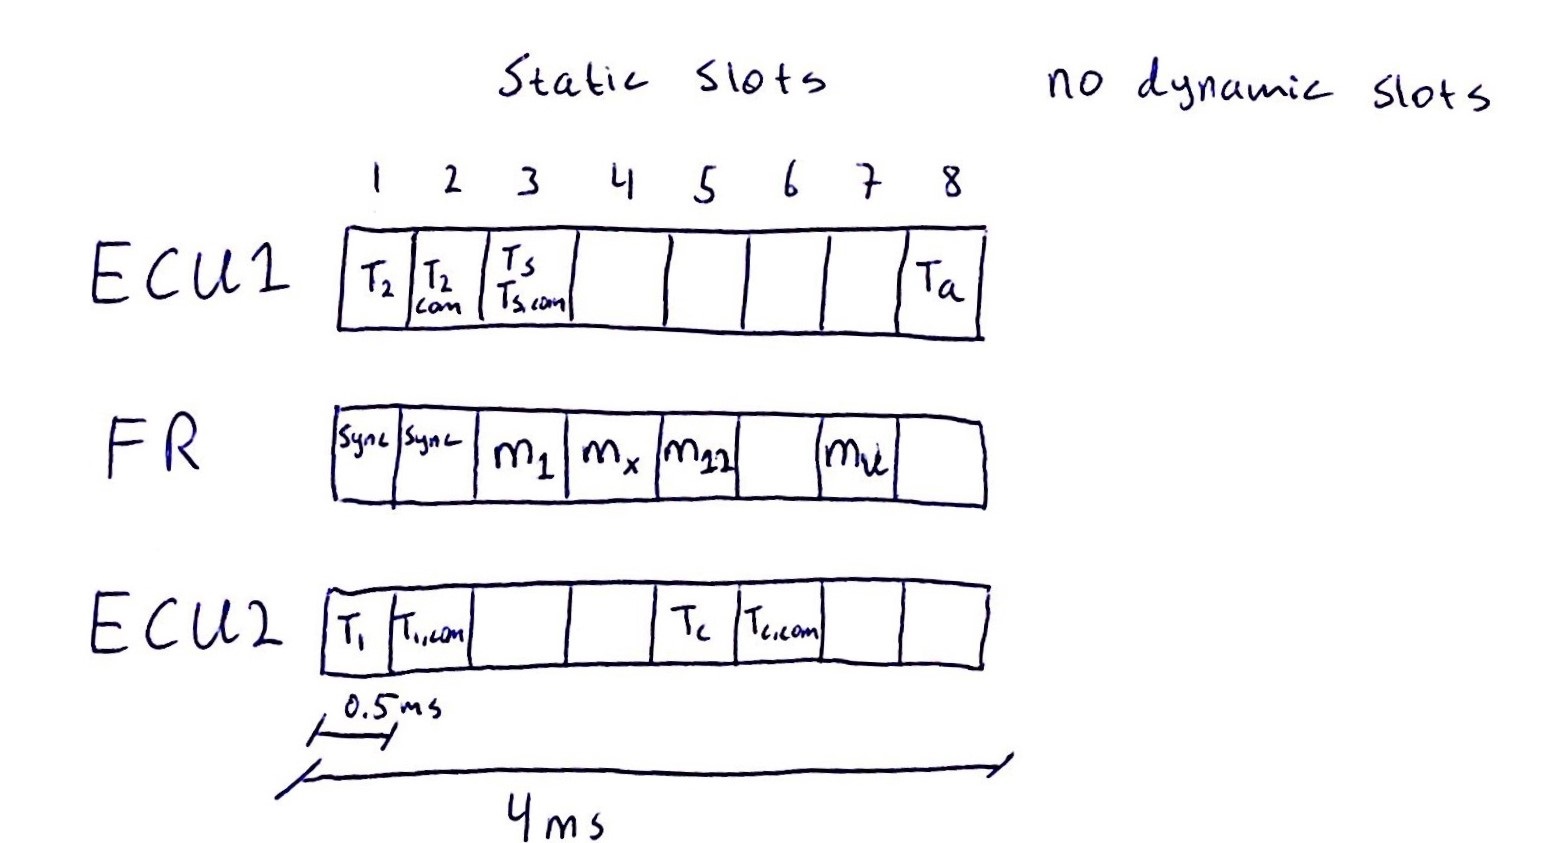 Static slots no dynamic slots
1 2 3 4 5 6 7 8
ECU1 T2 T2 Ts Ta
com Ts,com
FR Sync Sync m1 mx m22 mu
ECU2 T1 T1,com Tc Tc,com
0.5ms
4ms